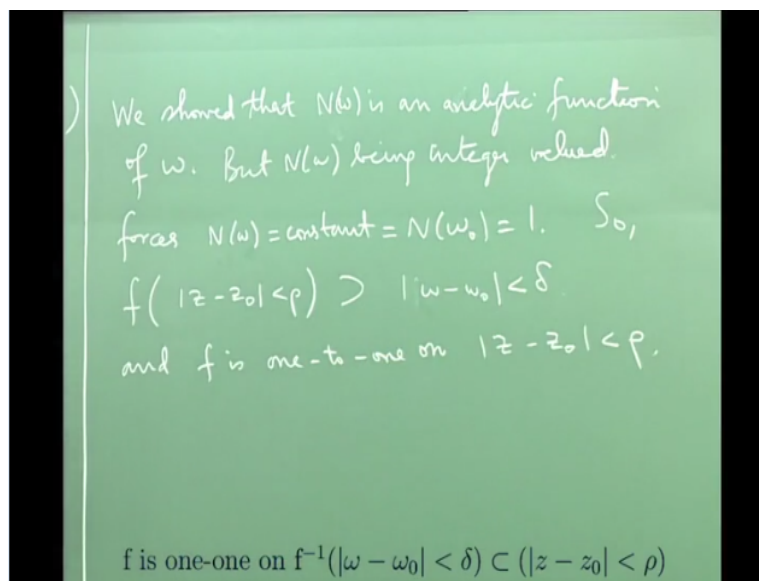 ) We showed that N(ω) is an analytic function
of ω. But N(ω) being integer valued
forces N(ω) = constant = N(ω₀) = 1. So,
f( |z-z₀|<ρ) ⊃ |ω-ω₀|<δ
and f is one-to-one on |z-z₀|<ρ.
f is one-one on f⁻¹(|ω − ω₀| < δ) ⊂ (|z − z₀| < ρ)